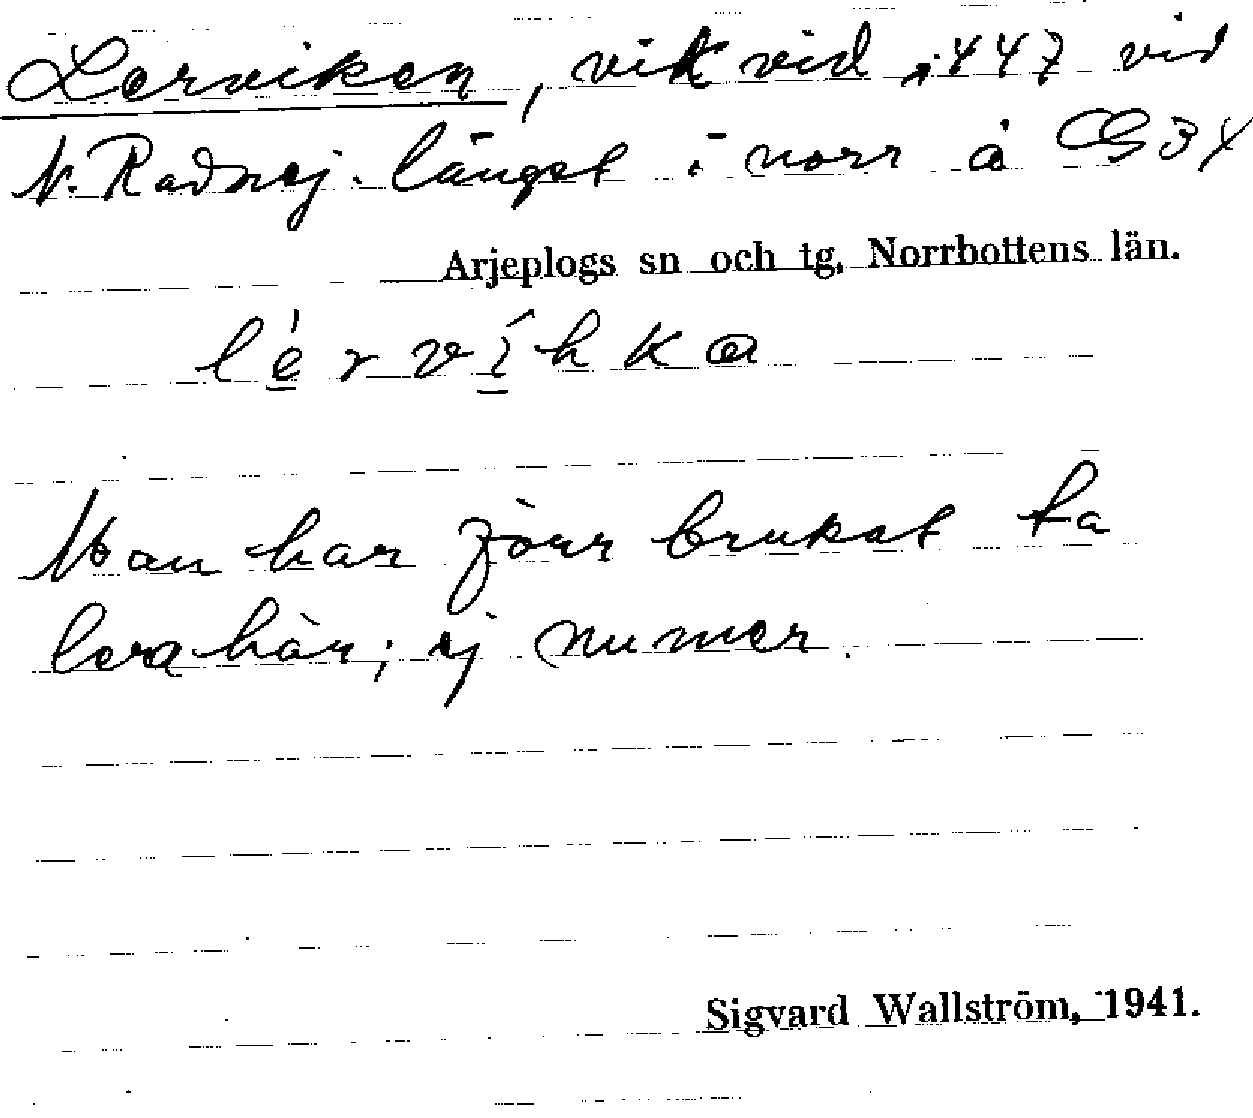 Lerviken, vik vid .447 vid
N. Radnej. längst i norr å CG3Y
Arjeplogs sn och tg, Norrbottens län.
lérvíhka
Man har förr brukat ta
lera här; ej numer.
Sigvard Wallström, 1941.